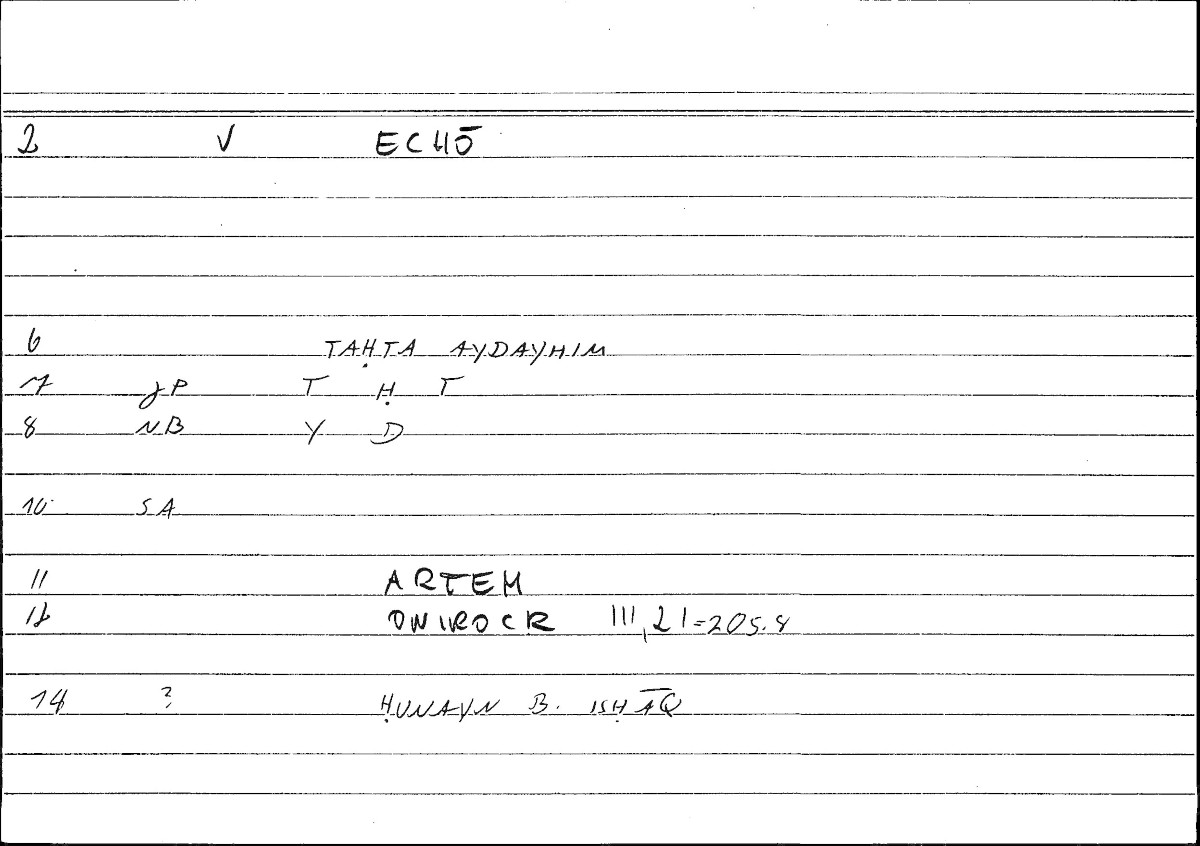 2 V ECHŌ
6 TAḤTA AYDAYHIM
7 JP T Ḥ T
8 NB Y D
10 SA
11 ARTEM
12 ONIROCR III, 21=205.8
14 ? ḤUNAYN B. ISḤĀQ